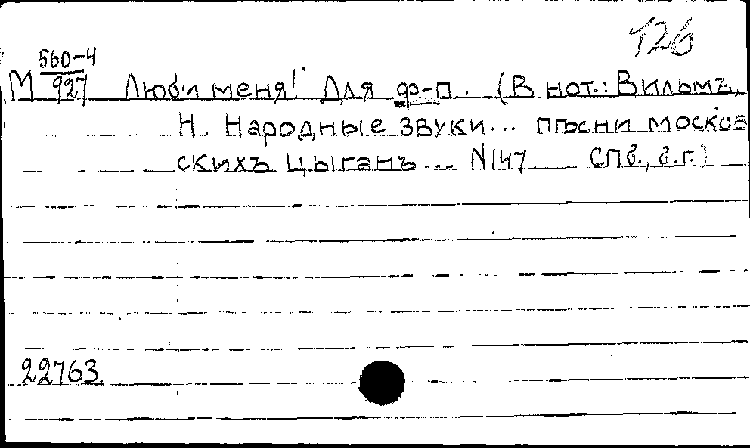 126
М 560-4/927 Люби меня! Для ф-п. (В нот.: Вильмъ,
Н. Народные звуки... пѣсни москов
скихъ цыганъ... N147 СПб., б.г.)
22763.